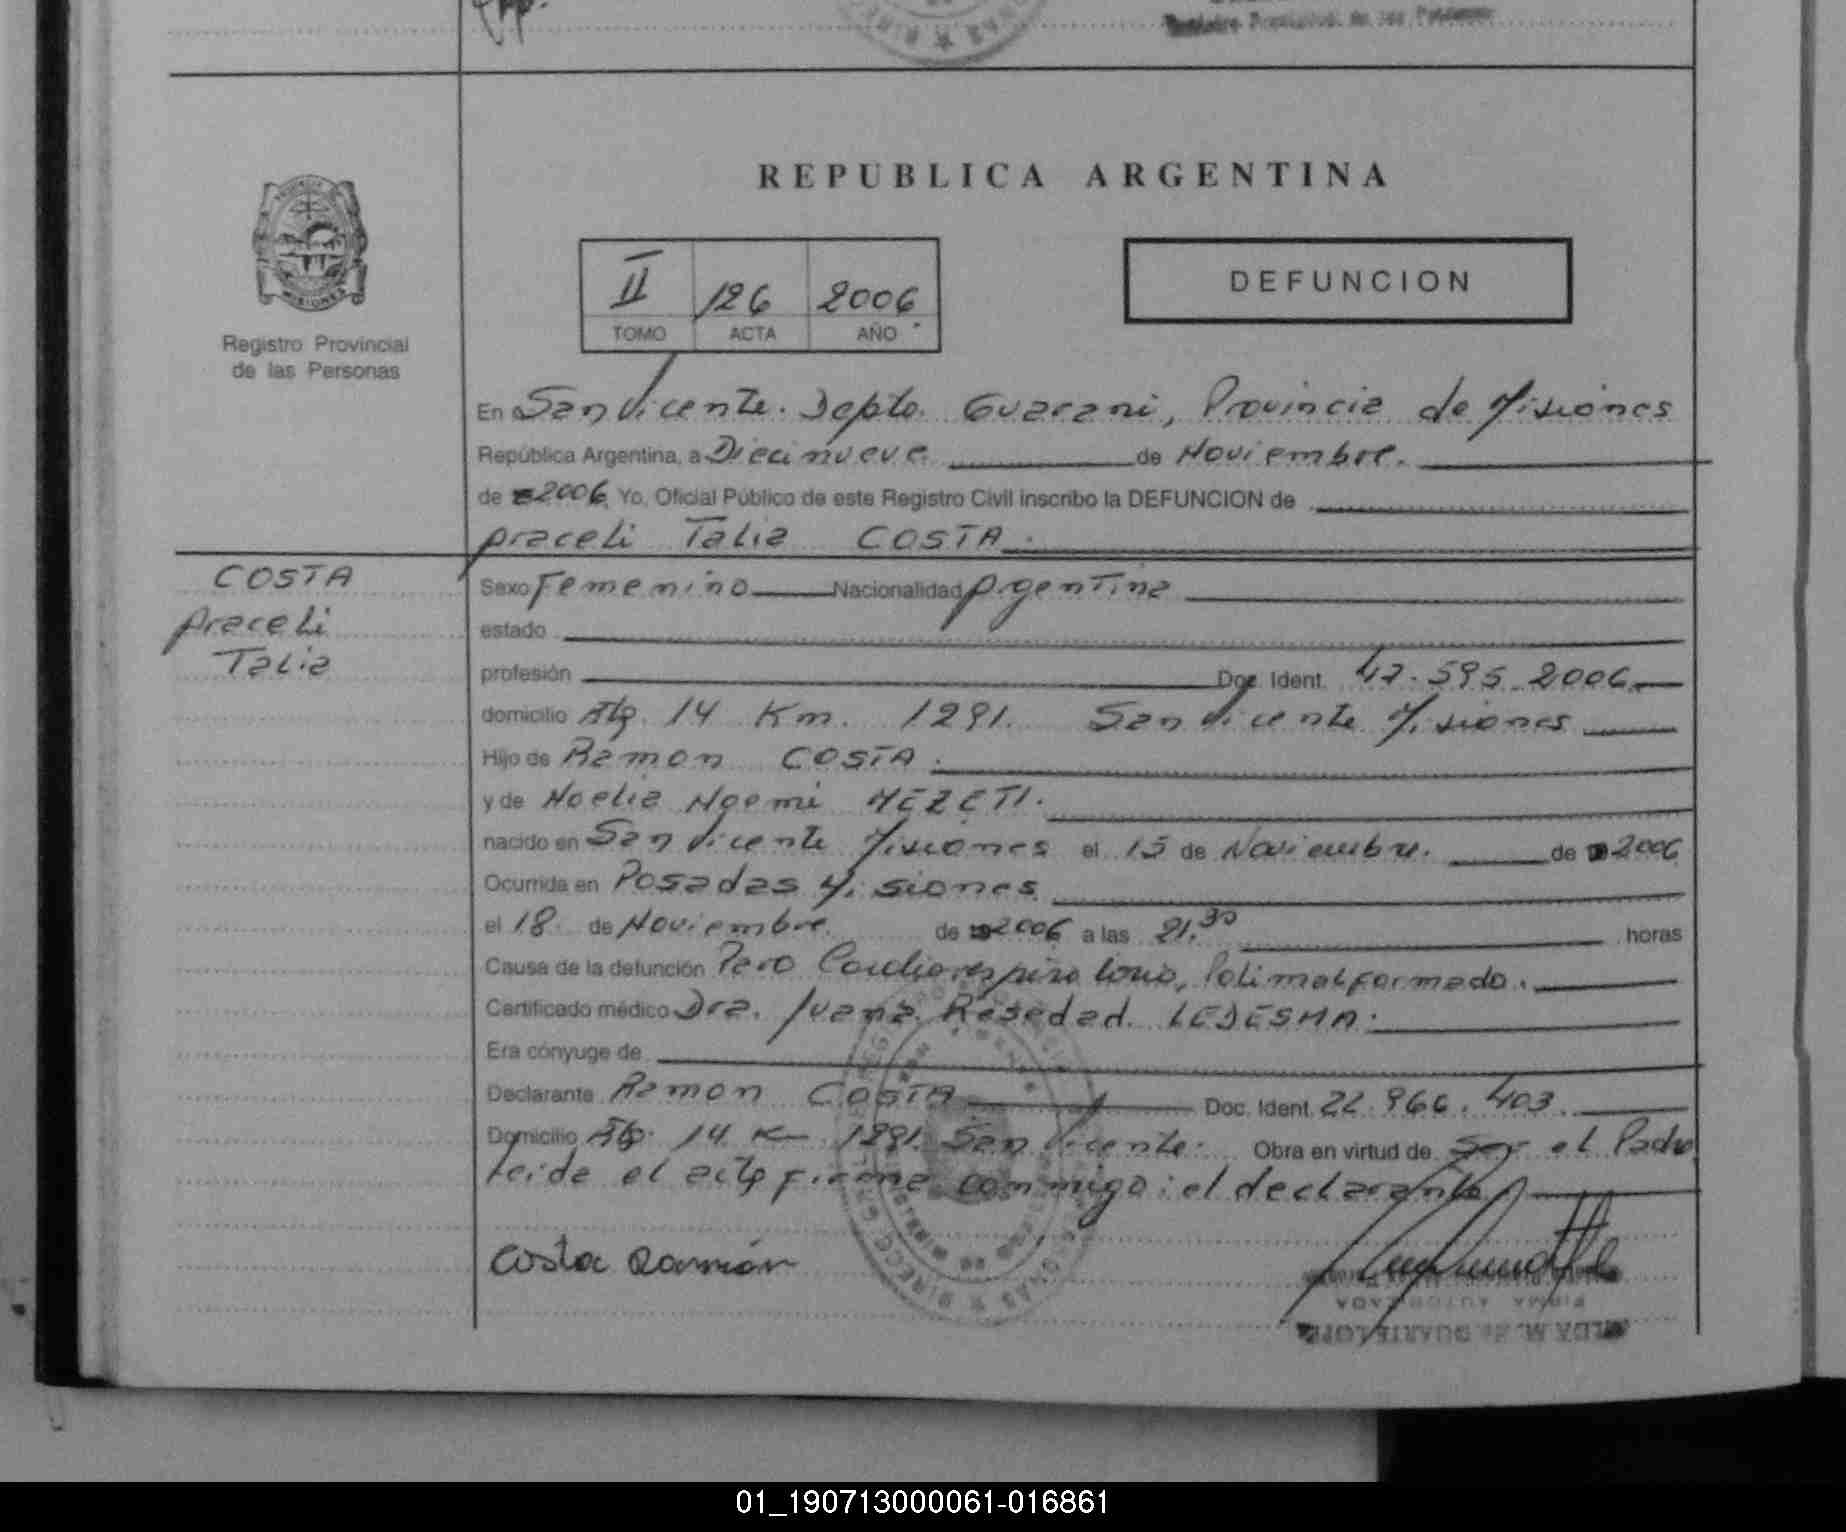 REPUBLICA ARGENTINA
II 126 2006
TOMO ACTA AÑO
DEFUNCION
Registro Provincial
de las Personas
MISIONES
En San Vicente. Depto. Guarani, Provincia de Misiones
República Argentina, a Diecinueve de Noviembre.
de 2006, Yo, Oficial Público de este Registro Civil inscribo la DEFUNCION de
Araceli Talia COSTA.
COSTA
Araceli
Talia
Sexo Femenino Nacionalidad Argentina
estado
profesión Doc. Ident. 47.595 2006
domicilio 14 Km. 1291. San Vicente Misiones
Hijo de Ramon COSTA.
y de Noelia Noemi MEZETI.
nacido en San Vicente Misiones el 15 de Noviembre. de 2006
Ocurrida en Posadas Misiones
el 18 de Noviembre de 2006 a las 21.30 horas
Causa de la defunción Paro Cardiorespiratorio, Polimalformado.
Certificado médico Dra. Juana Resedad. LEDESMA.
Era cónyuge de
Declarante Ramon COSTA Doc. Ident. 22.966.403.
Domicilio 14 Km 1291. San Vicente. Obra en virtud de Ser el Padre
leida el acta firma conmigo: el declarante
Costa Ramón
FIRMA AUTORIZADA
01_190713000061-016861